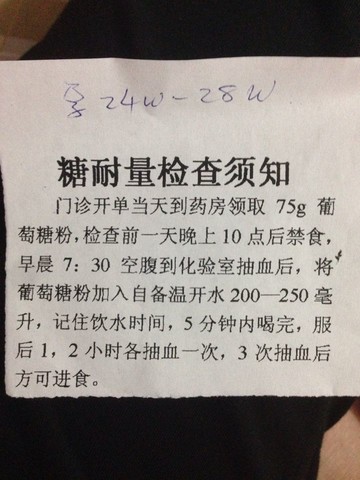 孕24W-28W
糖耐量检查须知
门诊开单当天到药房领取 75g 葡
萄糖粉，检查前一天晚上 10 点后禁食，
早晨 7：30 空腹到化验室抽血后，将
葡萄糖粉加入自备温开水 200—250 毫
升，记住饮水时间，5 分钟内喝完，服
后 1，2 小时各抽血一次，3 次抽血后
方可进食。